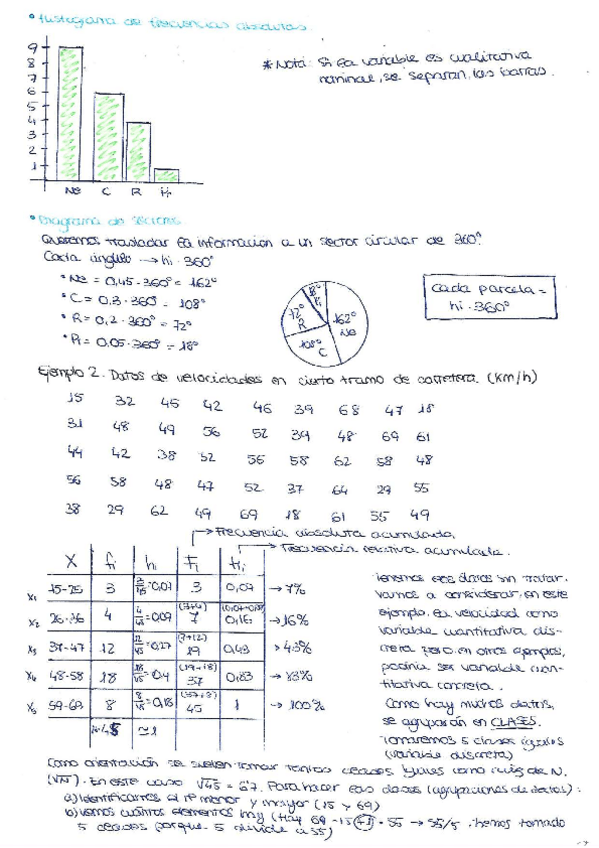 * Histograma de frecuencias absolutas.
9
8
7
6
5
4
3
2
1
Ne C R Pi
* Nota: Si la variable es cualitativa
nominal, se separan las barras.
* Diagrama de sectores
Queremos trasladar la información a un sector circular de 360°.
Cada ángulo → hi · 360°
* Ne = 0,45 · 360° = 162°
* C = 0,3 · 360° = 108°
* R = 0,2 · 360° = 72°
* Pi = 0,05 · 360° = 18°
18°
Pi
72°
R
162°
Ne
108°
C
Cada parcela =
hi · 360°
Ejemplo 2. Datos de velocidades en cierto tramo de carretera. (km/h)
15 32 45 42 46 39 68 47 18
31 48 49 56 52 39 48 69 61
44 42 38 52 56 58 62 58 48
56 58 48 47 52 37 64 29 55
38 29 62 49 69 18 61 55 49
→ Frecuencia absoluta acumulada.
→ Frecuencia relativa acumulada.
X fi hi Fi Hi
x1 15-25 3 3/45=0,07 3 0,07 → 7%
x2 26-36 4 4/45=0,09 (3+4) 7 0,16 → 16%
x3 37-47 12 12/45=0,27 (7+12) 19 0,43 → 43%
x4 48-58 18 18/45=0,4 (19+18) 37 0,83 → 83%
x5 59-69 8 8/45=0,18 (37+8) 45 1 → 100%
N=45 ≃1
Tenemos esos datos sin tratar.
Vamos a considerar, en este
ejemplo, la velocidad como
variable cuantitativa dis-
creta pero, en otros ejemplos,
podría ser variable cuan-
titativa concreta.
Como hay muchos datos,
se agruparán en CLASES.
Tomaremos 5 clases iguales
(variable discreta)
Como orientación se suelen tomar tantas clases iguales como raíz de N.
(√N). En este caso √45 = 6'7. Para hacer las clases (agrupaciones de datos):
a) Identificamos el nº menor y mayor (15 y 69)
b) Vemos cuántos elementos hay (Hay 69 - 15 +1 = 55 → 55/5. hemos tomado
5 clases porque 5 divide a 55)